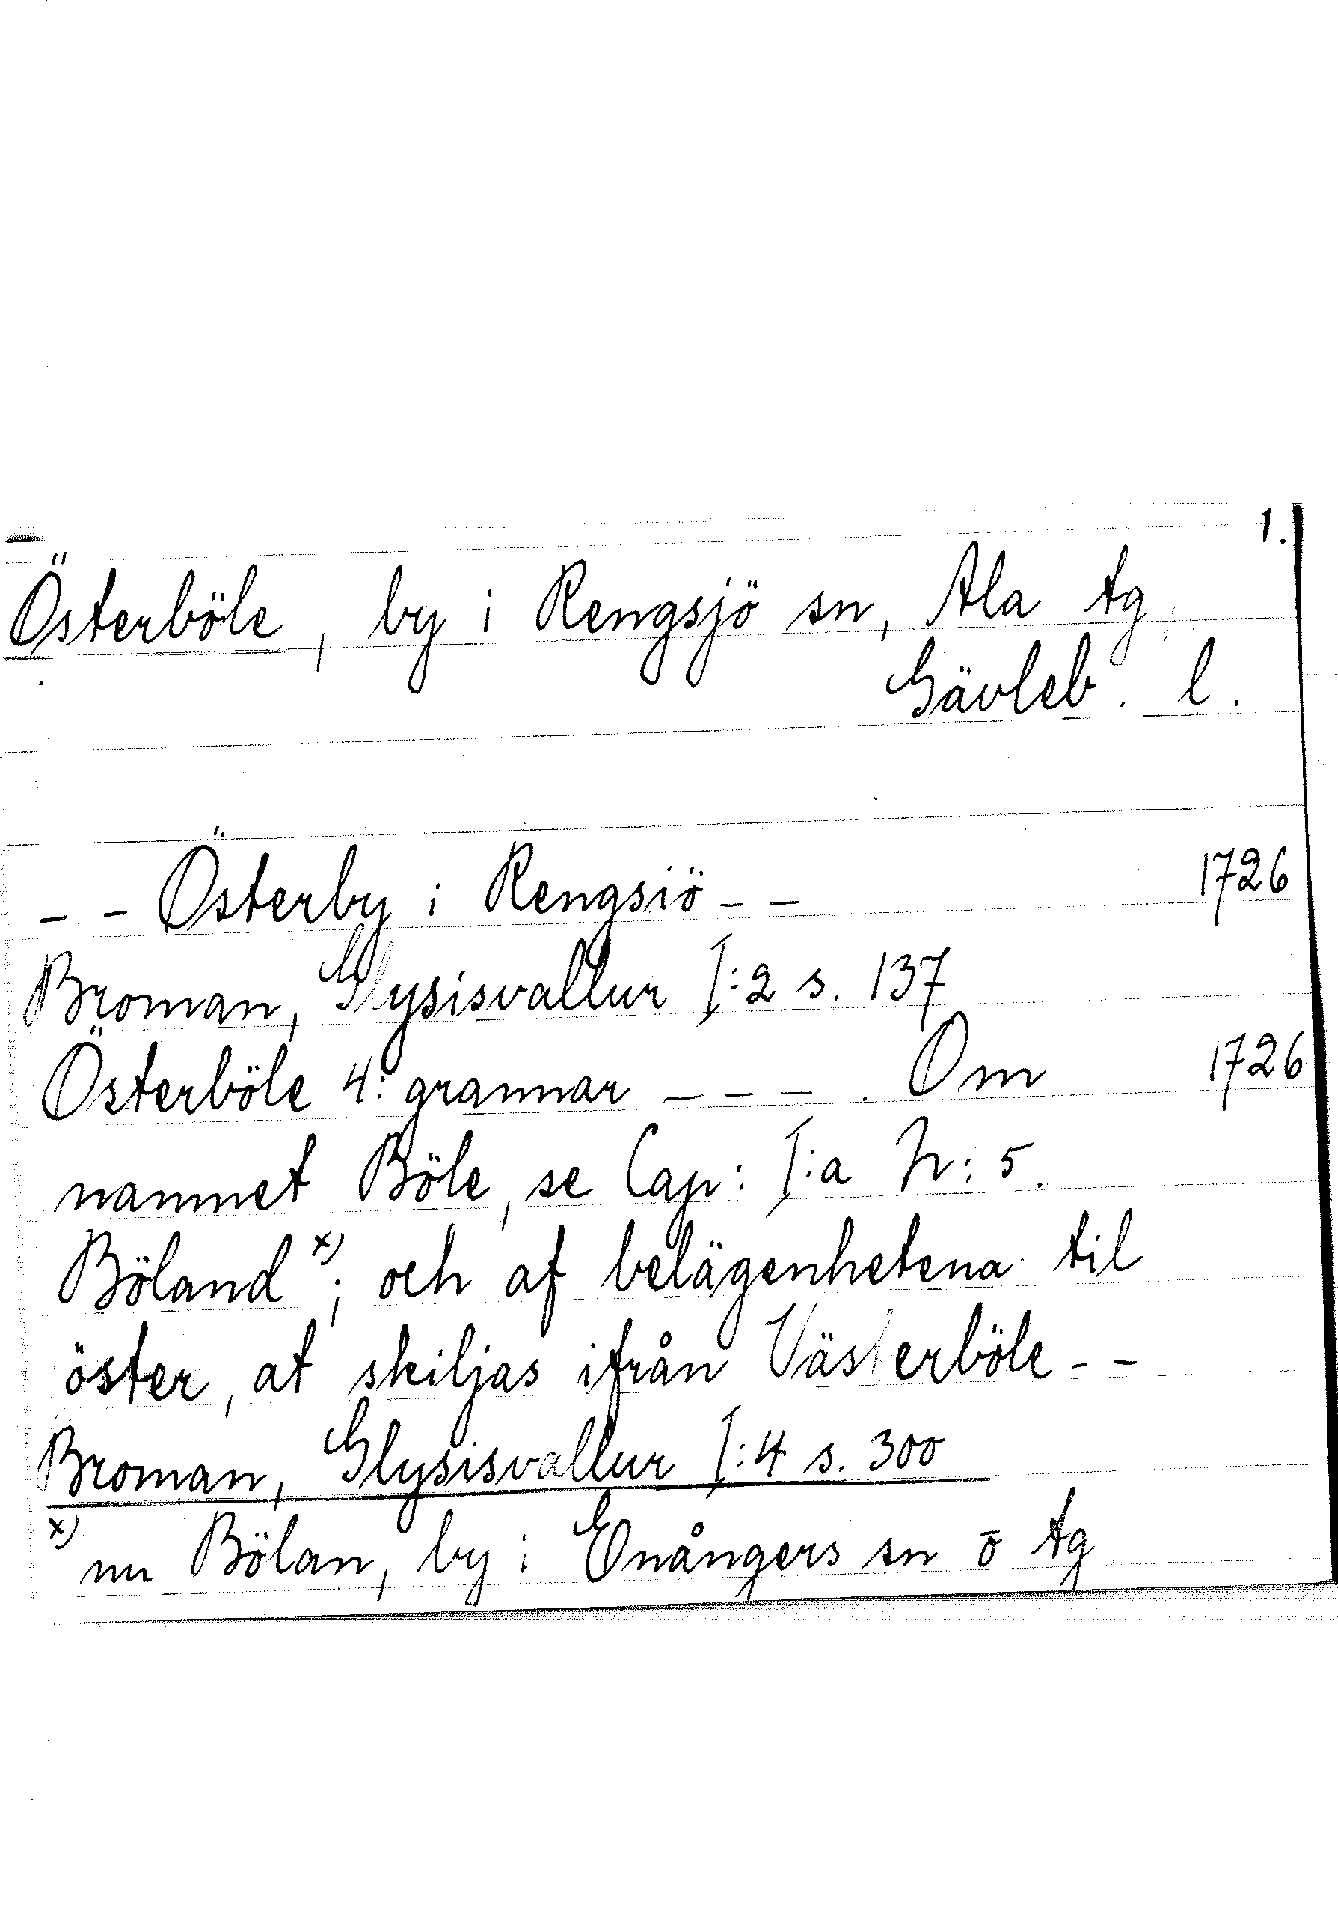 1.
Österböle, by i Rengsjö sn, Ala tg
Gävleb. l.
- - Österby i Rengsiö - - 1726
Broman, Glysisvallur I:2 s. 137
Österböle 4: grannar - - - . Om 1726
namnet Böle, se Cap: I:a N: 5.
Böland x); och af belägenhetena til
öster, at skiljas ifrån Västerböle - -
Broman, Glysisvallur I:4 s. 300
x) nu Bölan, by i Enångers sn o tg